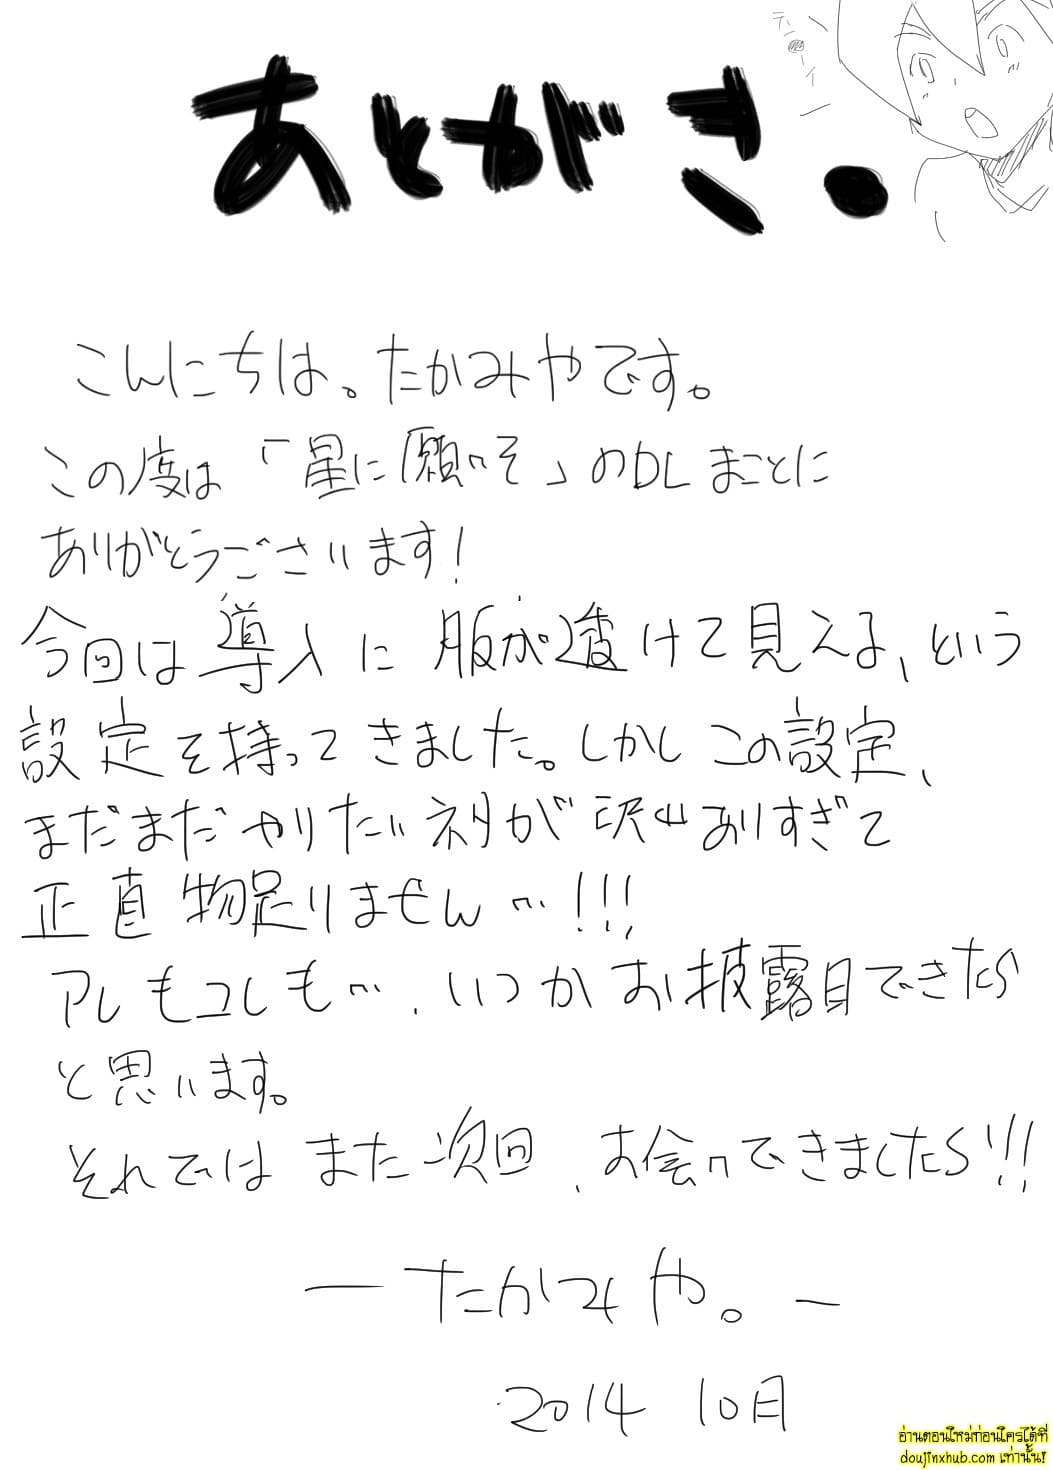 あとがき.
こんにちは。たかみやです。
この度は「星に願いを」のDLまことに
ありがとうございます!
今回は導入に服が透けて見える、という
設定を持ってきました。しかしこの設定、
まだまだやりたいネタが沢山ありすぎて
正直物足りません…!!!
アレもコレも…、いつかお披露目できたら
と思います。
それではまた次回、お会いできましたら!!!
—たかみや。—
2014 10月
อ่านตอนใหม่ก่อนใครได้ที่
doujinxhub.com เท่านั้น!